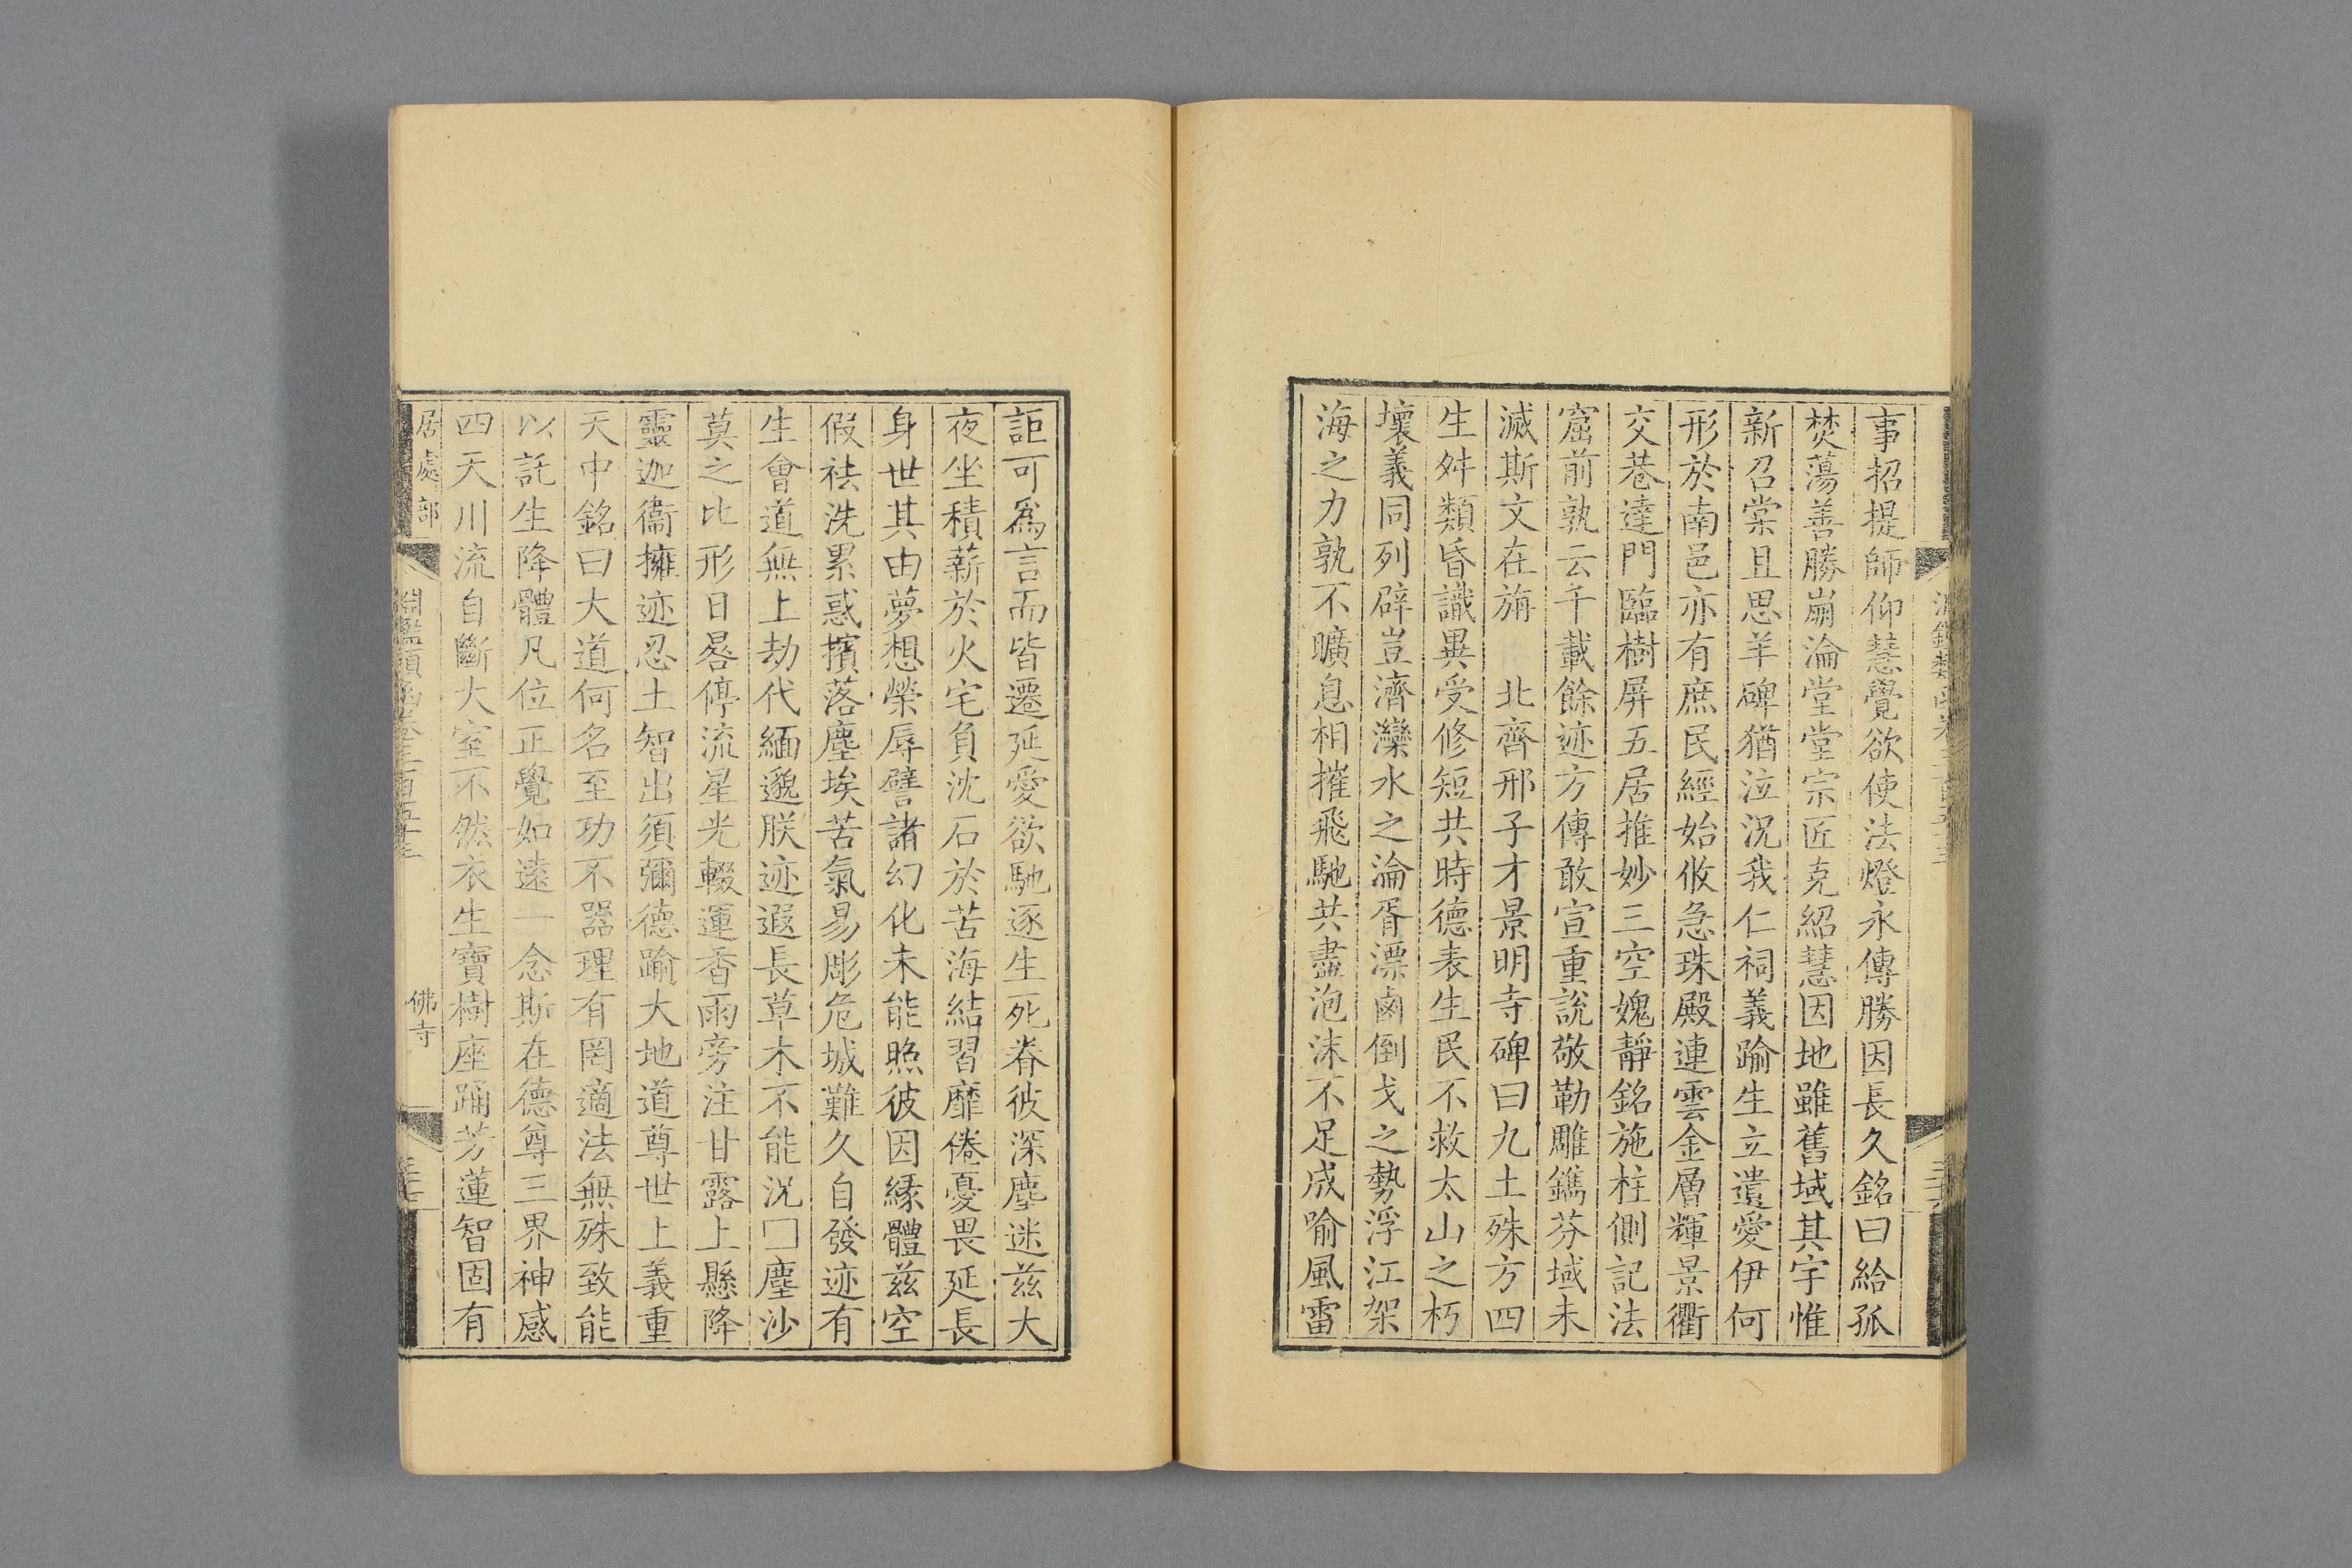 事招提師仰慧覺欲使法燈永傳勝因長久銘曰給孤
焚蕩善勝崩淪堂堂宗匠克紹慧因地雖舊域其宇惟
新召棠且思羊碑猶泣況我仁祠義踰生立遺愛伊何
形於南邑亦有庶民經始攸急珠殿連雲金層輝景衢
交巷達門臨樹屏五居推妙三空媿靜銘施柱側記法
窟前孰云千載餘迹方傳敢宣重說敬勒雕鐫芬域未
滅斯文在旃　北齊邢子才景明寺碑曰九土殊方四
生舛類昏識異受修短共時德表生民不救太山之朽
壞義同列辟豈濟灤水之淪胥漂鹵倒戈之勢浮江架
海之力孰不曠息相摧飛馳共盡泡沫不足成喻風雷
詎可爲言而皆遷延愛欲馳逐生死眷彼深塵迷茲大
夜坐積薪於火宅負沈石於苦海結習靡倦憂畏延長
身世其由夢想榮辱譬諸幻化未能照彼因緣體茲空
假祛洗累惑擯落塵埃苦氣易彫危城難久自發迹有
生會道無上劫代緬邈朕迹遐長草木不能況□塵沙
莫之比形日晷停流星光輟運香雨旁注甘露上懸降
靈迦衞擁迹忍土智出須彌德踰大地道尊世上義重
天中銘曰大道何名至功不器理有罔適法無殊致能
以託生降體凡位正覺如遠一念斯在德尊三界神感
四天川流自斷大室不然衣生寶樹座踊芳蓮智固有
居處部
淵鑑類函卷三百五十三
佛寺